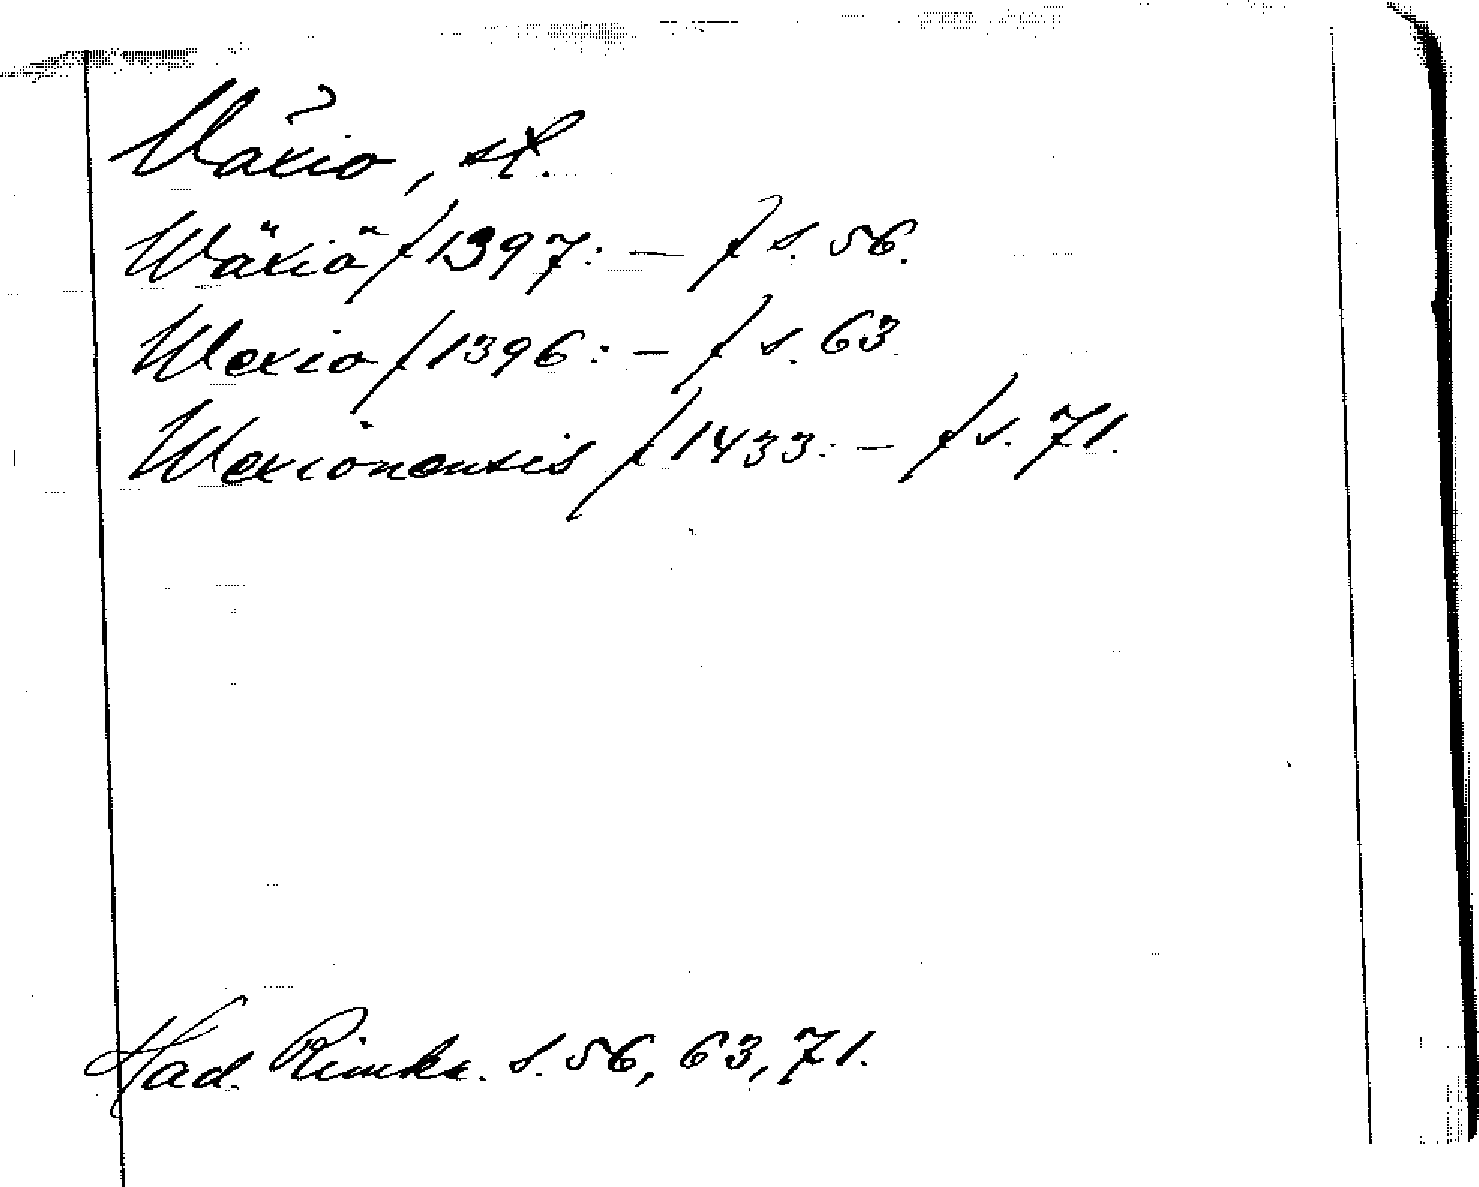 Växio, st.
Wäxiö f 1397: — f s. 56.
Wexio f 1396: — f s. 63
Wexionensis f 1433: — f s. 71.
Had. Rimkr. s. 56, 63, 71.